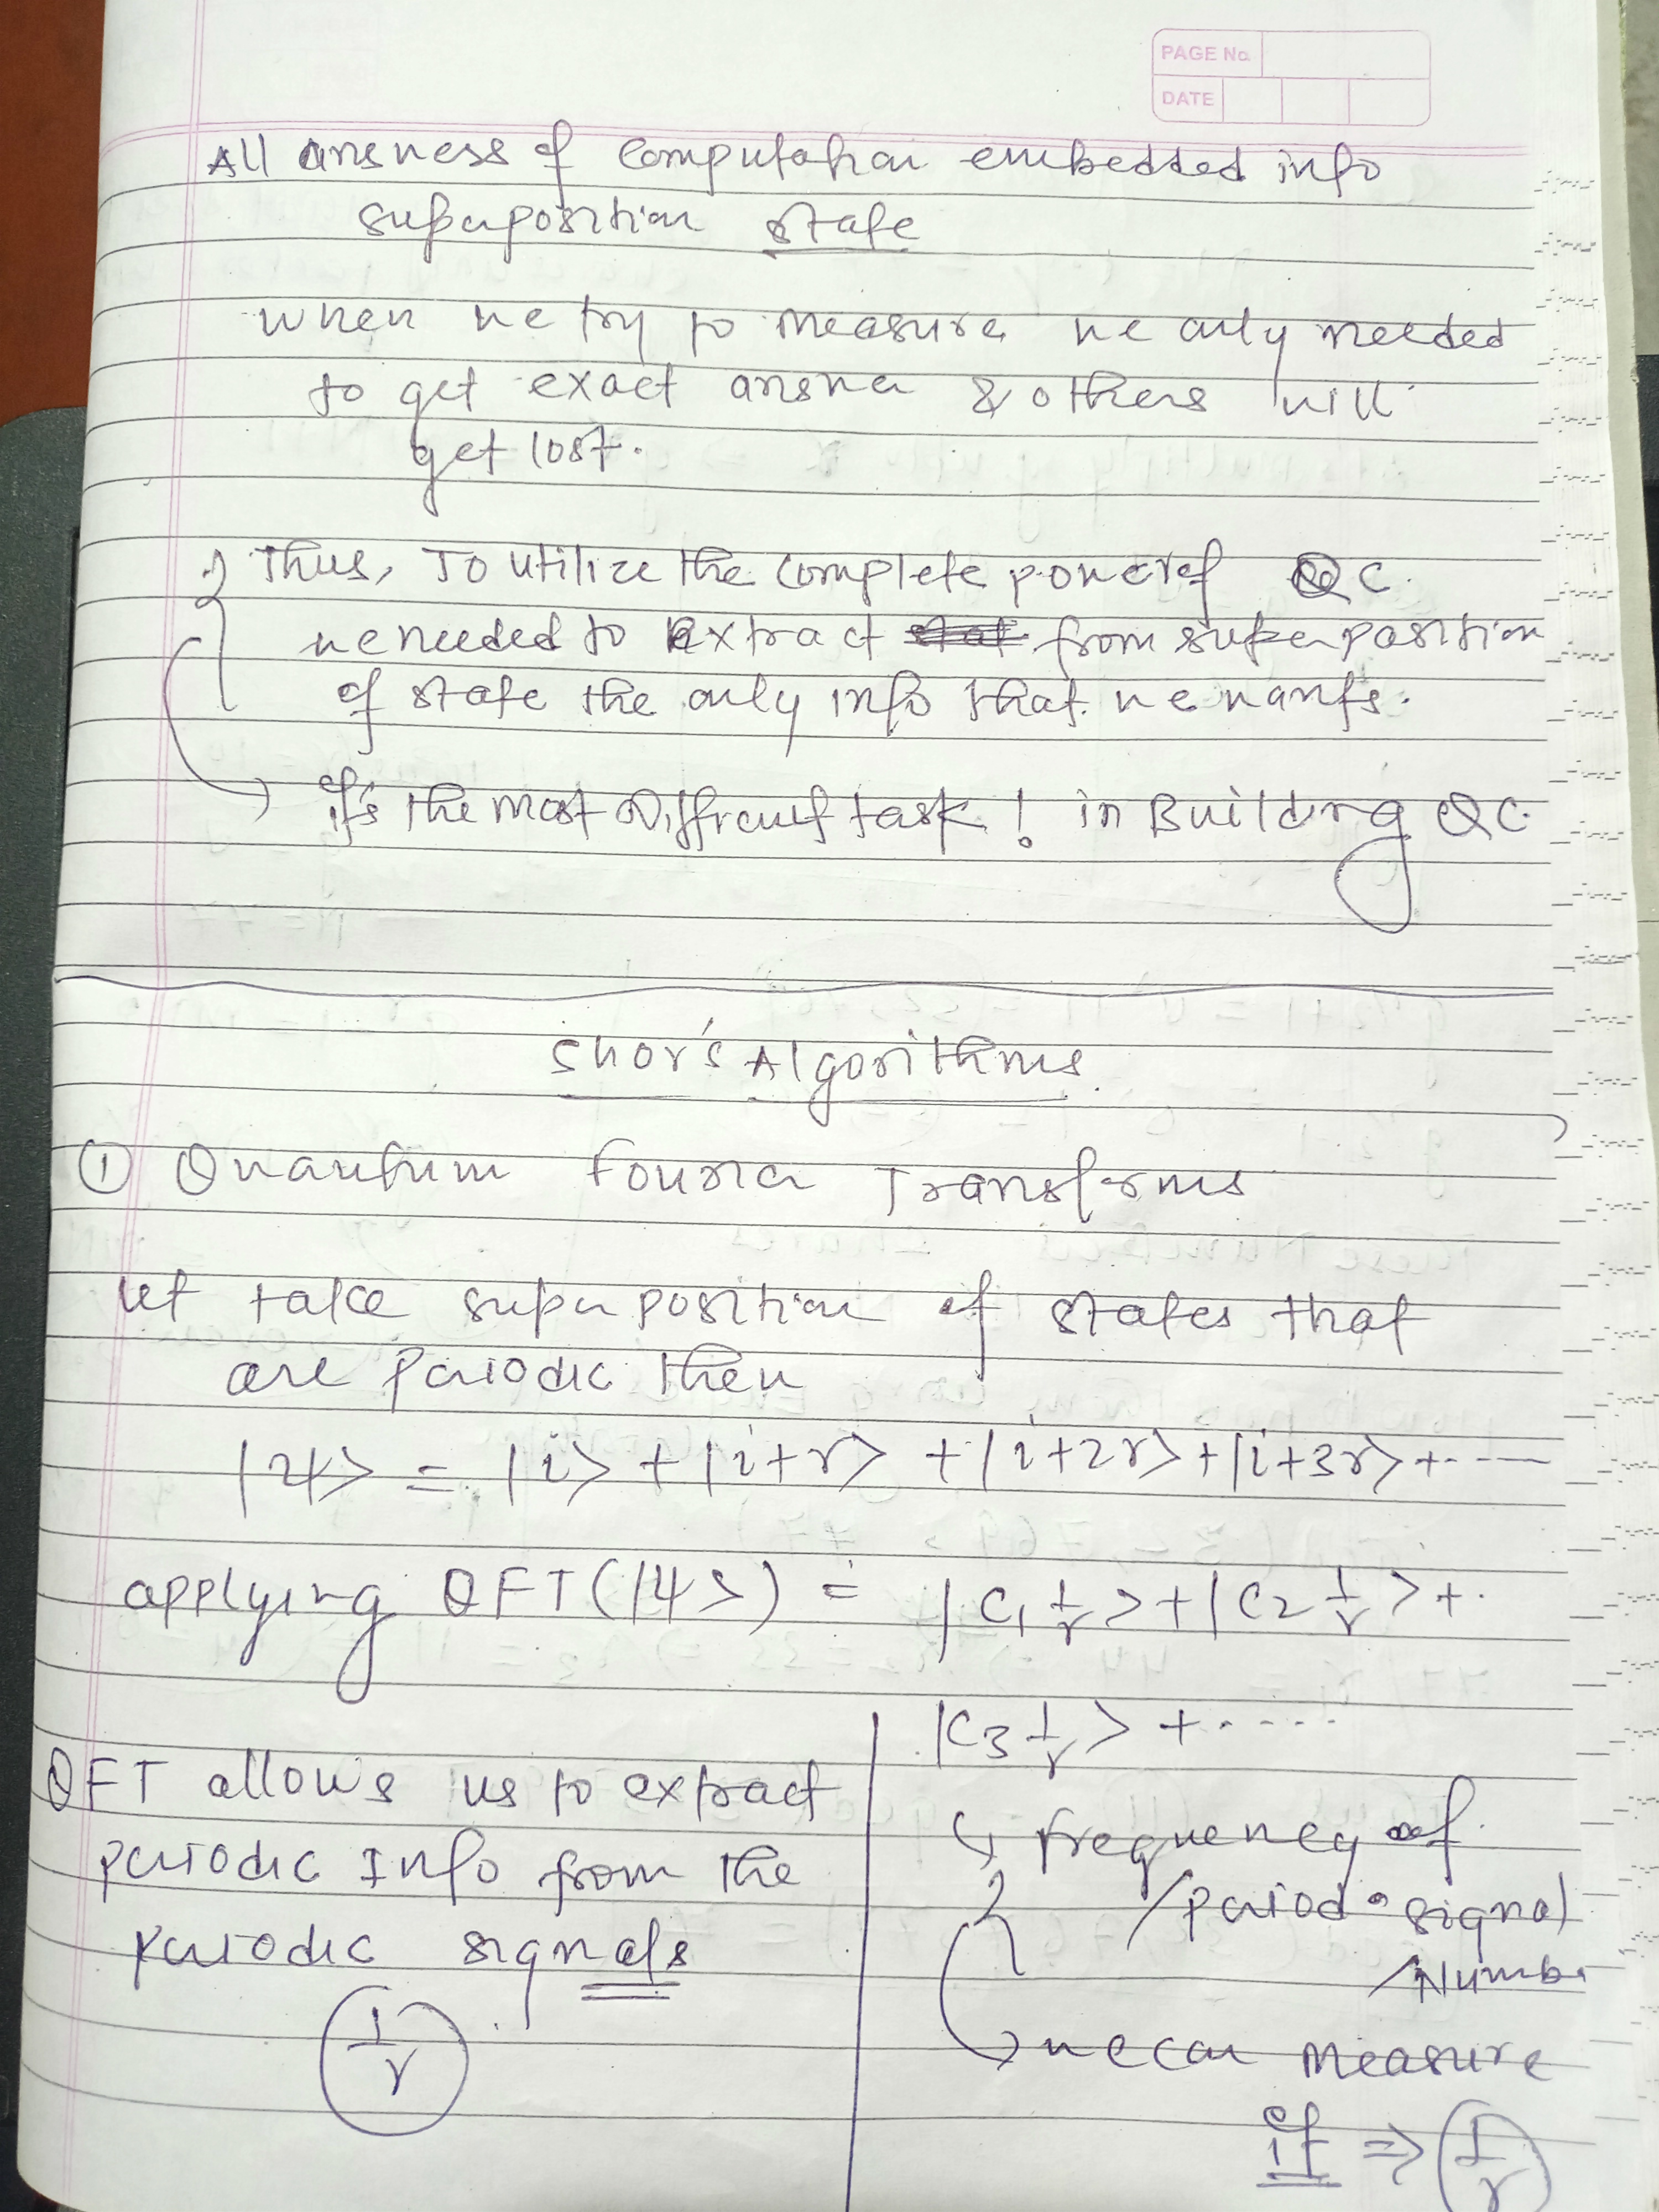 PAGE No.
DATE
All answers of computation embedded into
superposition state
when we try to measure we only needed
to get exact answer & others will
get lost.
Thus, To utilize the complete power of QC.
we needed to Extract from superposition
of state the only info that we wants.
→ it's the most Difficult task! in Building QC.
Shor's Algorithms
① Quantum Fourier Transforms
let take superposition of states that
are periodic then
|ψ> = |i> + |i+r> + |i+2r> + |i+3r> + ----
applying QFT(|ψ>) = |C₁ 1/r> + |C₂ 1/r> + ..
|C₃ 1/r> + .....
QFT allows us to extract
periodic Info from the
periodic signals
1/r
↳ frequency of
/period signal
/Number
→ we can measure
it ⇒ 1/r